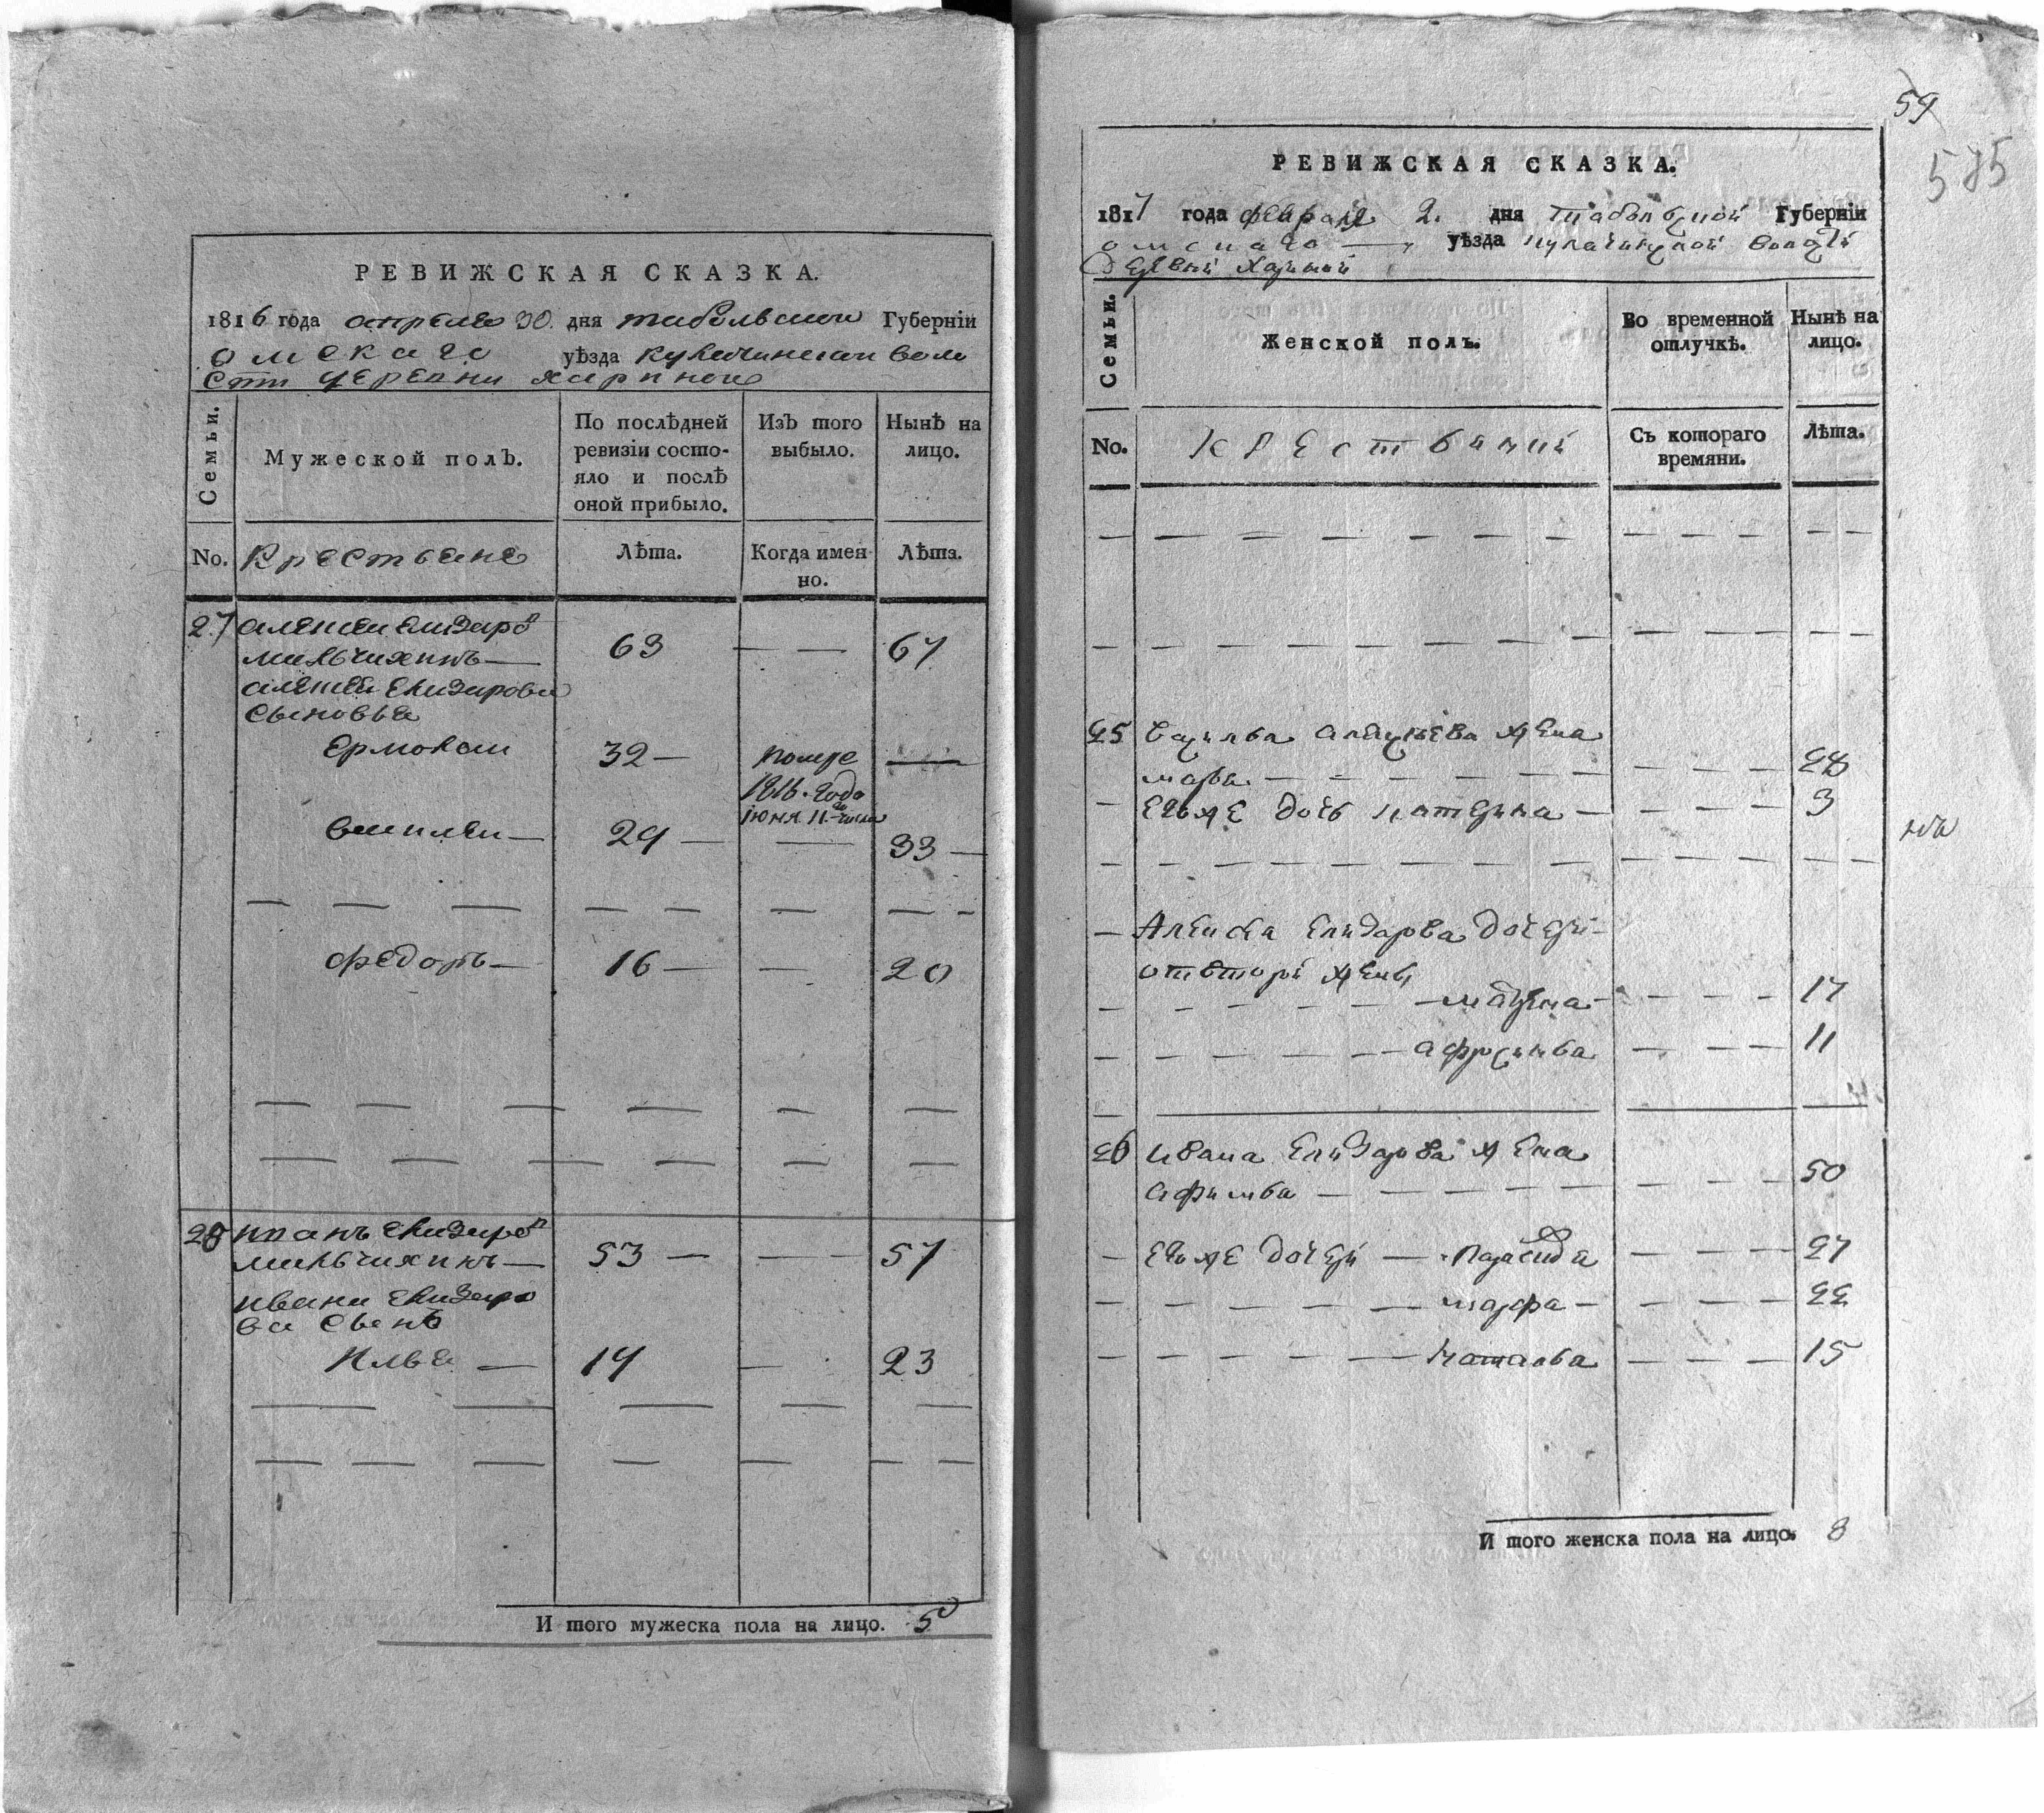 РЕВИЖСКАЯ СКАЗКА.
1816 года апреля 30. дня тобольской Губерніи
омскаго уѣзда кулачинской воло
сти деревни хариной
Семьи.
Мужеской полъ.
По послѣдней ревизіи состояло и послѣ оной прибыло.
Изъ того выбыло.
Нынѣ на лицо.
No.
Крестьяне
Лѣта.
Когда именно.
Лѣта.
27 алексеи елизаро
63 — — 67
алексеи елизарова
сыновья
ермолаи 32 — помре —
1816. года
июня 11. числа
василеи — 29 — — 33 —
федоръ — 16 — — 20
28 иванъ елизаро
53 — — — 57
ивана елизаро
ва сынъ
илья — 19 — 23
И того мужеска пола на лицо. 5
59
585
РЕВИЖСКАЯ СКАЗКА.
1817 года февраля 2. дня тобольской Губерніи
омскаго — уѣзда кулачинской волости
деревни харипой
Семьи.
Женской полъ.
Во временной отлучкѣ.
Нынѣ на лицо.
No.
крестьянии
Съ котораго времяни.
Лѣта.
25 василья алексѣева жена
марья — 28
— евоже дочь катерина — 3
— Алексѣя елизарова дочери
отвторой жены
матрена — 17
афросинья — 11
26 ивана елизарова жена
афимья — 50
— евоже дочери — 27
марфа — 22
наталья — 15
И того женска пола на лицо. 8